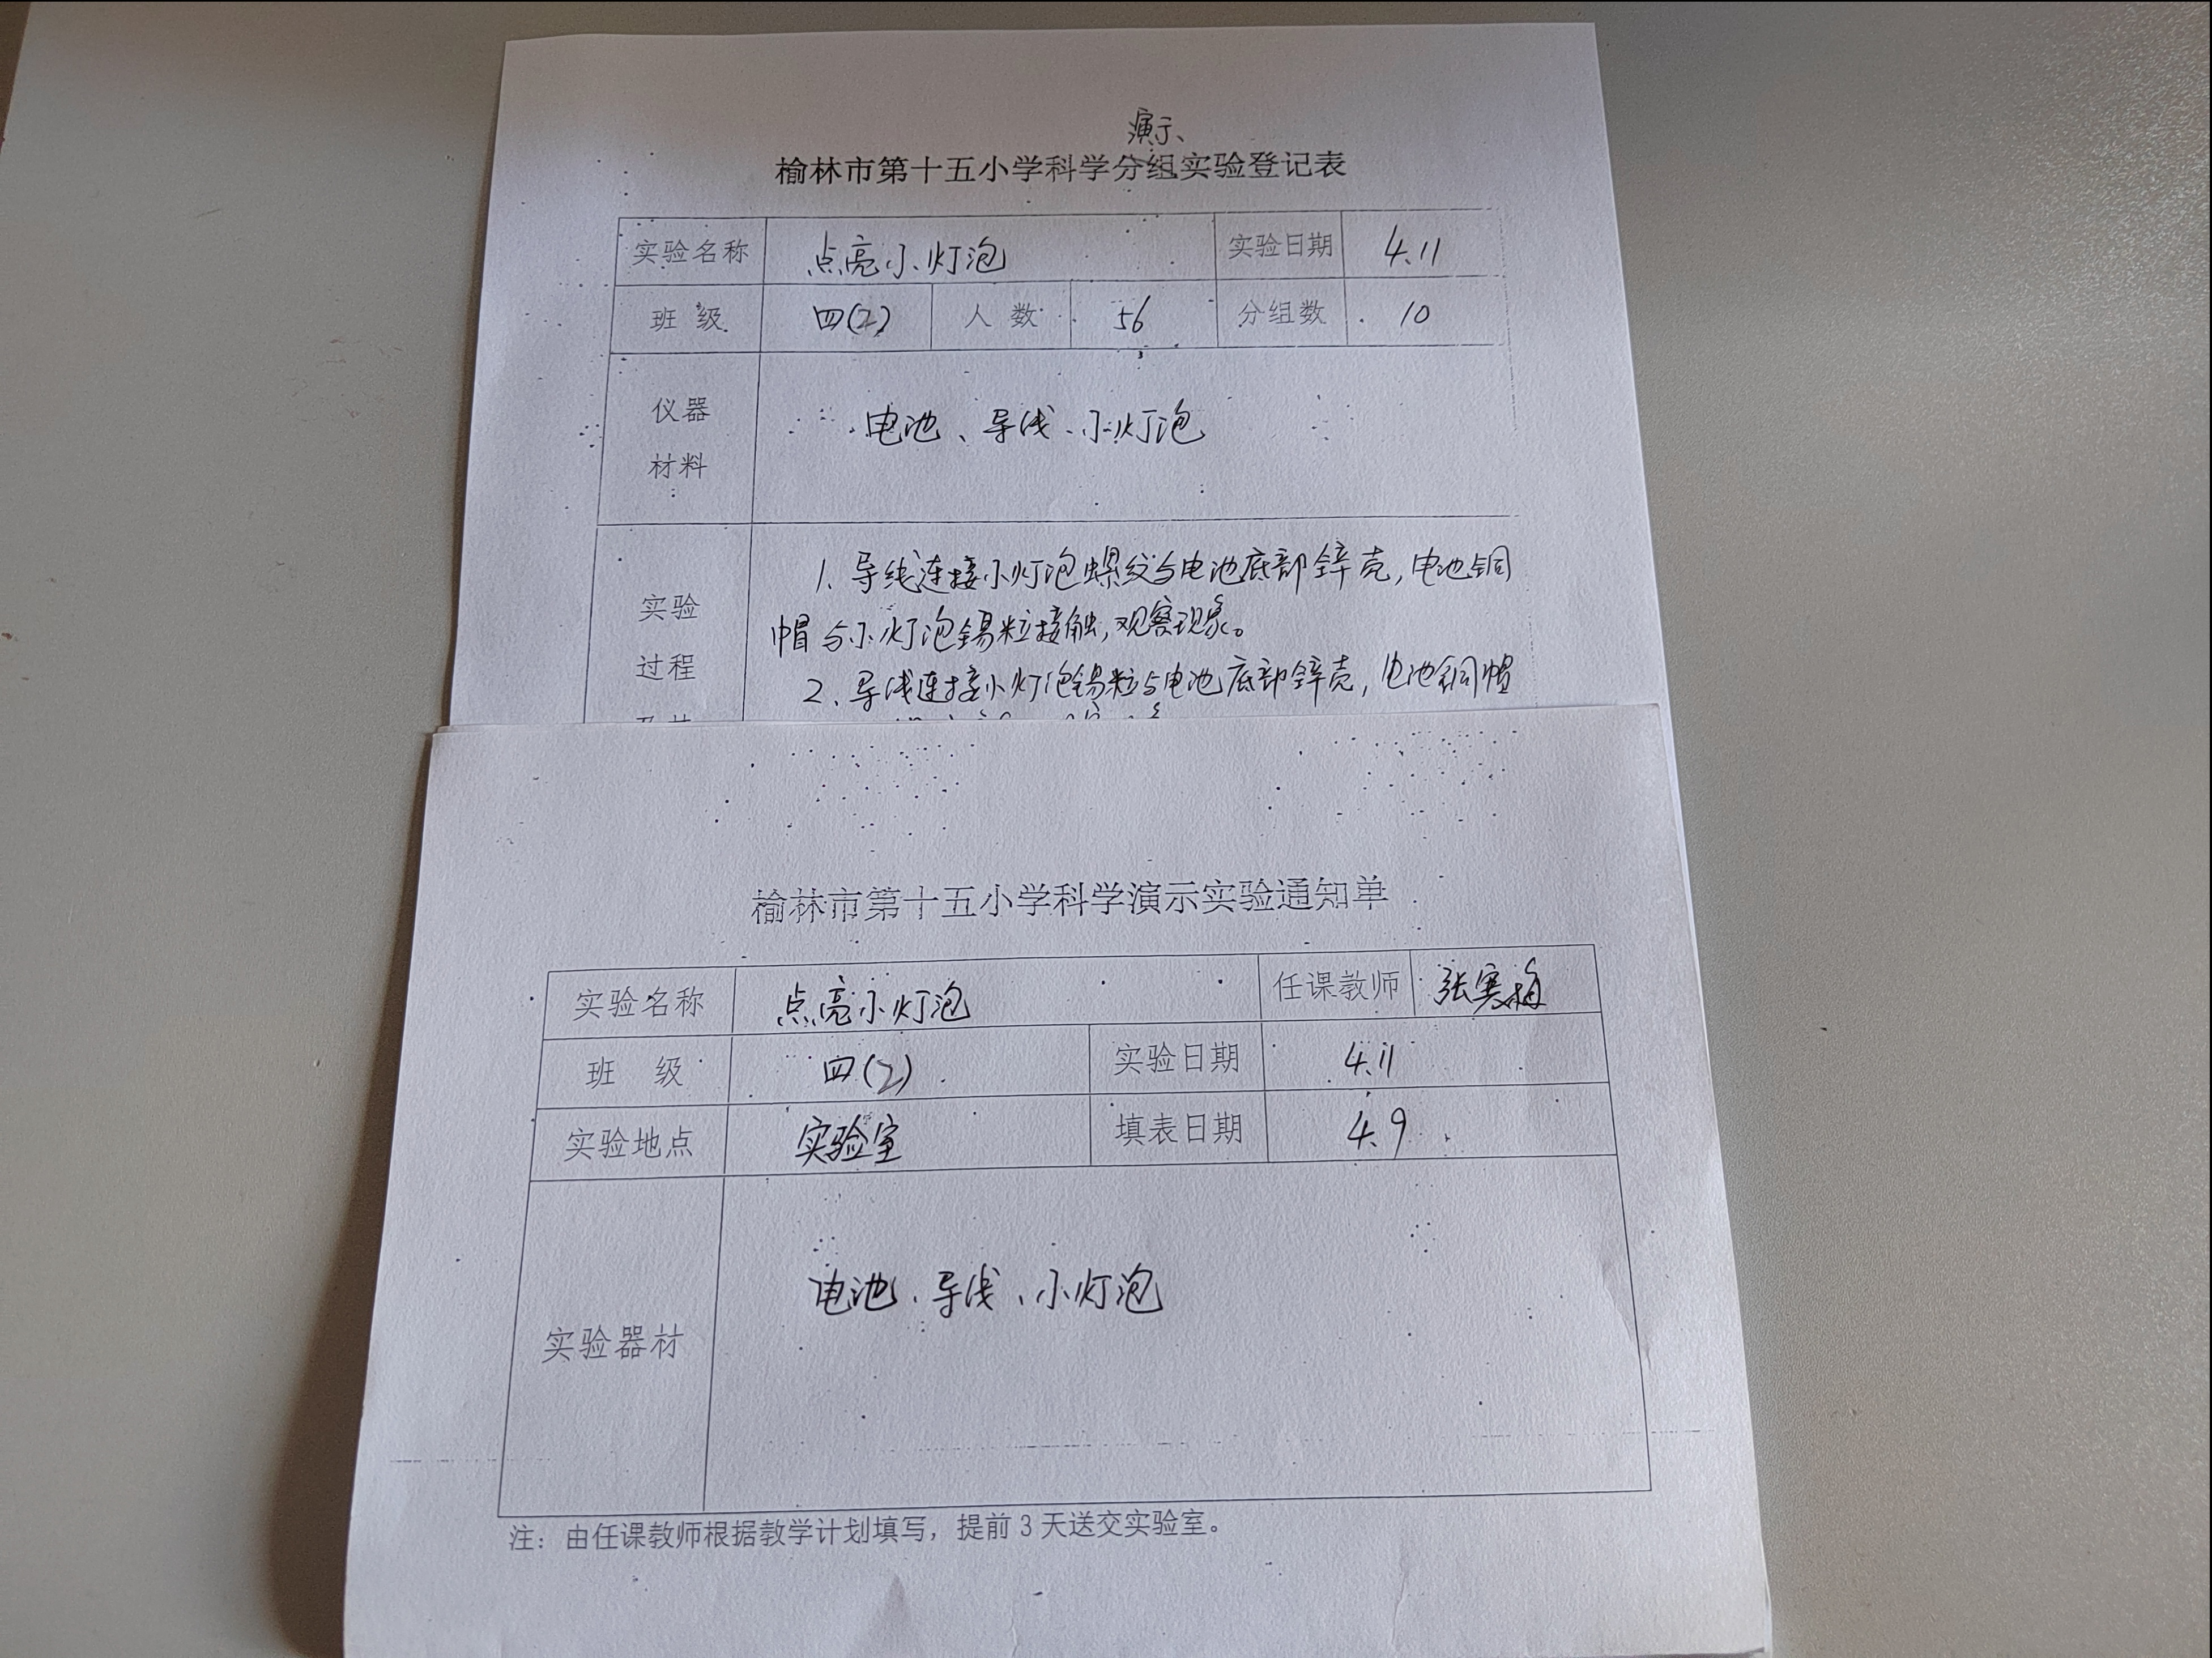 演示、
榆林市第十五小学科学分组实验登记表
实验名称 点亮小灯泡 实验日期 4.11
班 级 四(2) 人 数 56 分组数 10
仪器
材料
电池、导线、小灯泡
实验
过程
1、导线连接小灯泡螺纹与电池底部锌壳,电池铜
帽与小灯泡锡粒接触,观察现象。
2、导线连接小灯泡锡粒与电池底部锌壳,电池铜帽
榆林市第十五小学科学演示实验通知单
实验名称 点亮小灯泡 任课教师 张赛梅
班 级 四(2) 实验日期 4.11
实验地点 实验室 填表日期 4.9
实验器材 电池、导线、小灯泡
注：由任课教师根据教学计划填写，提前 3 天送交实验室。